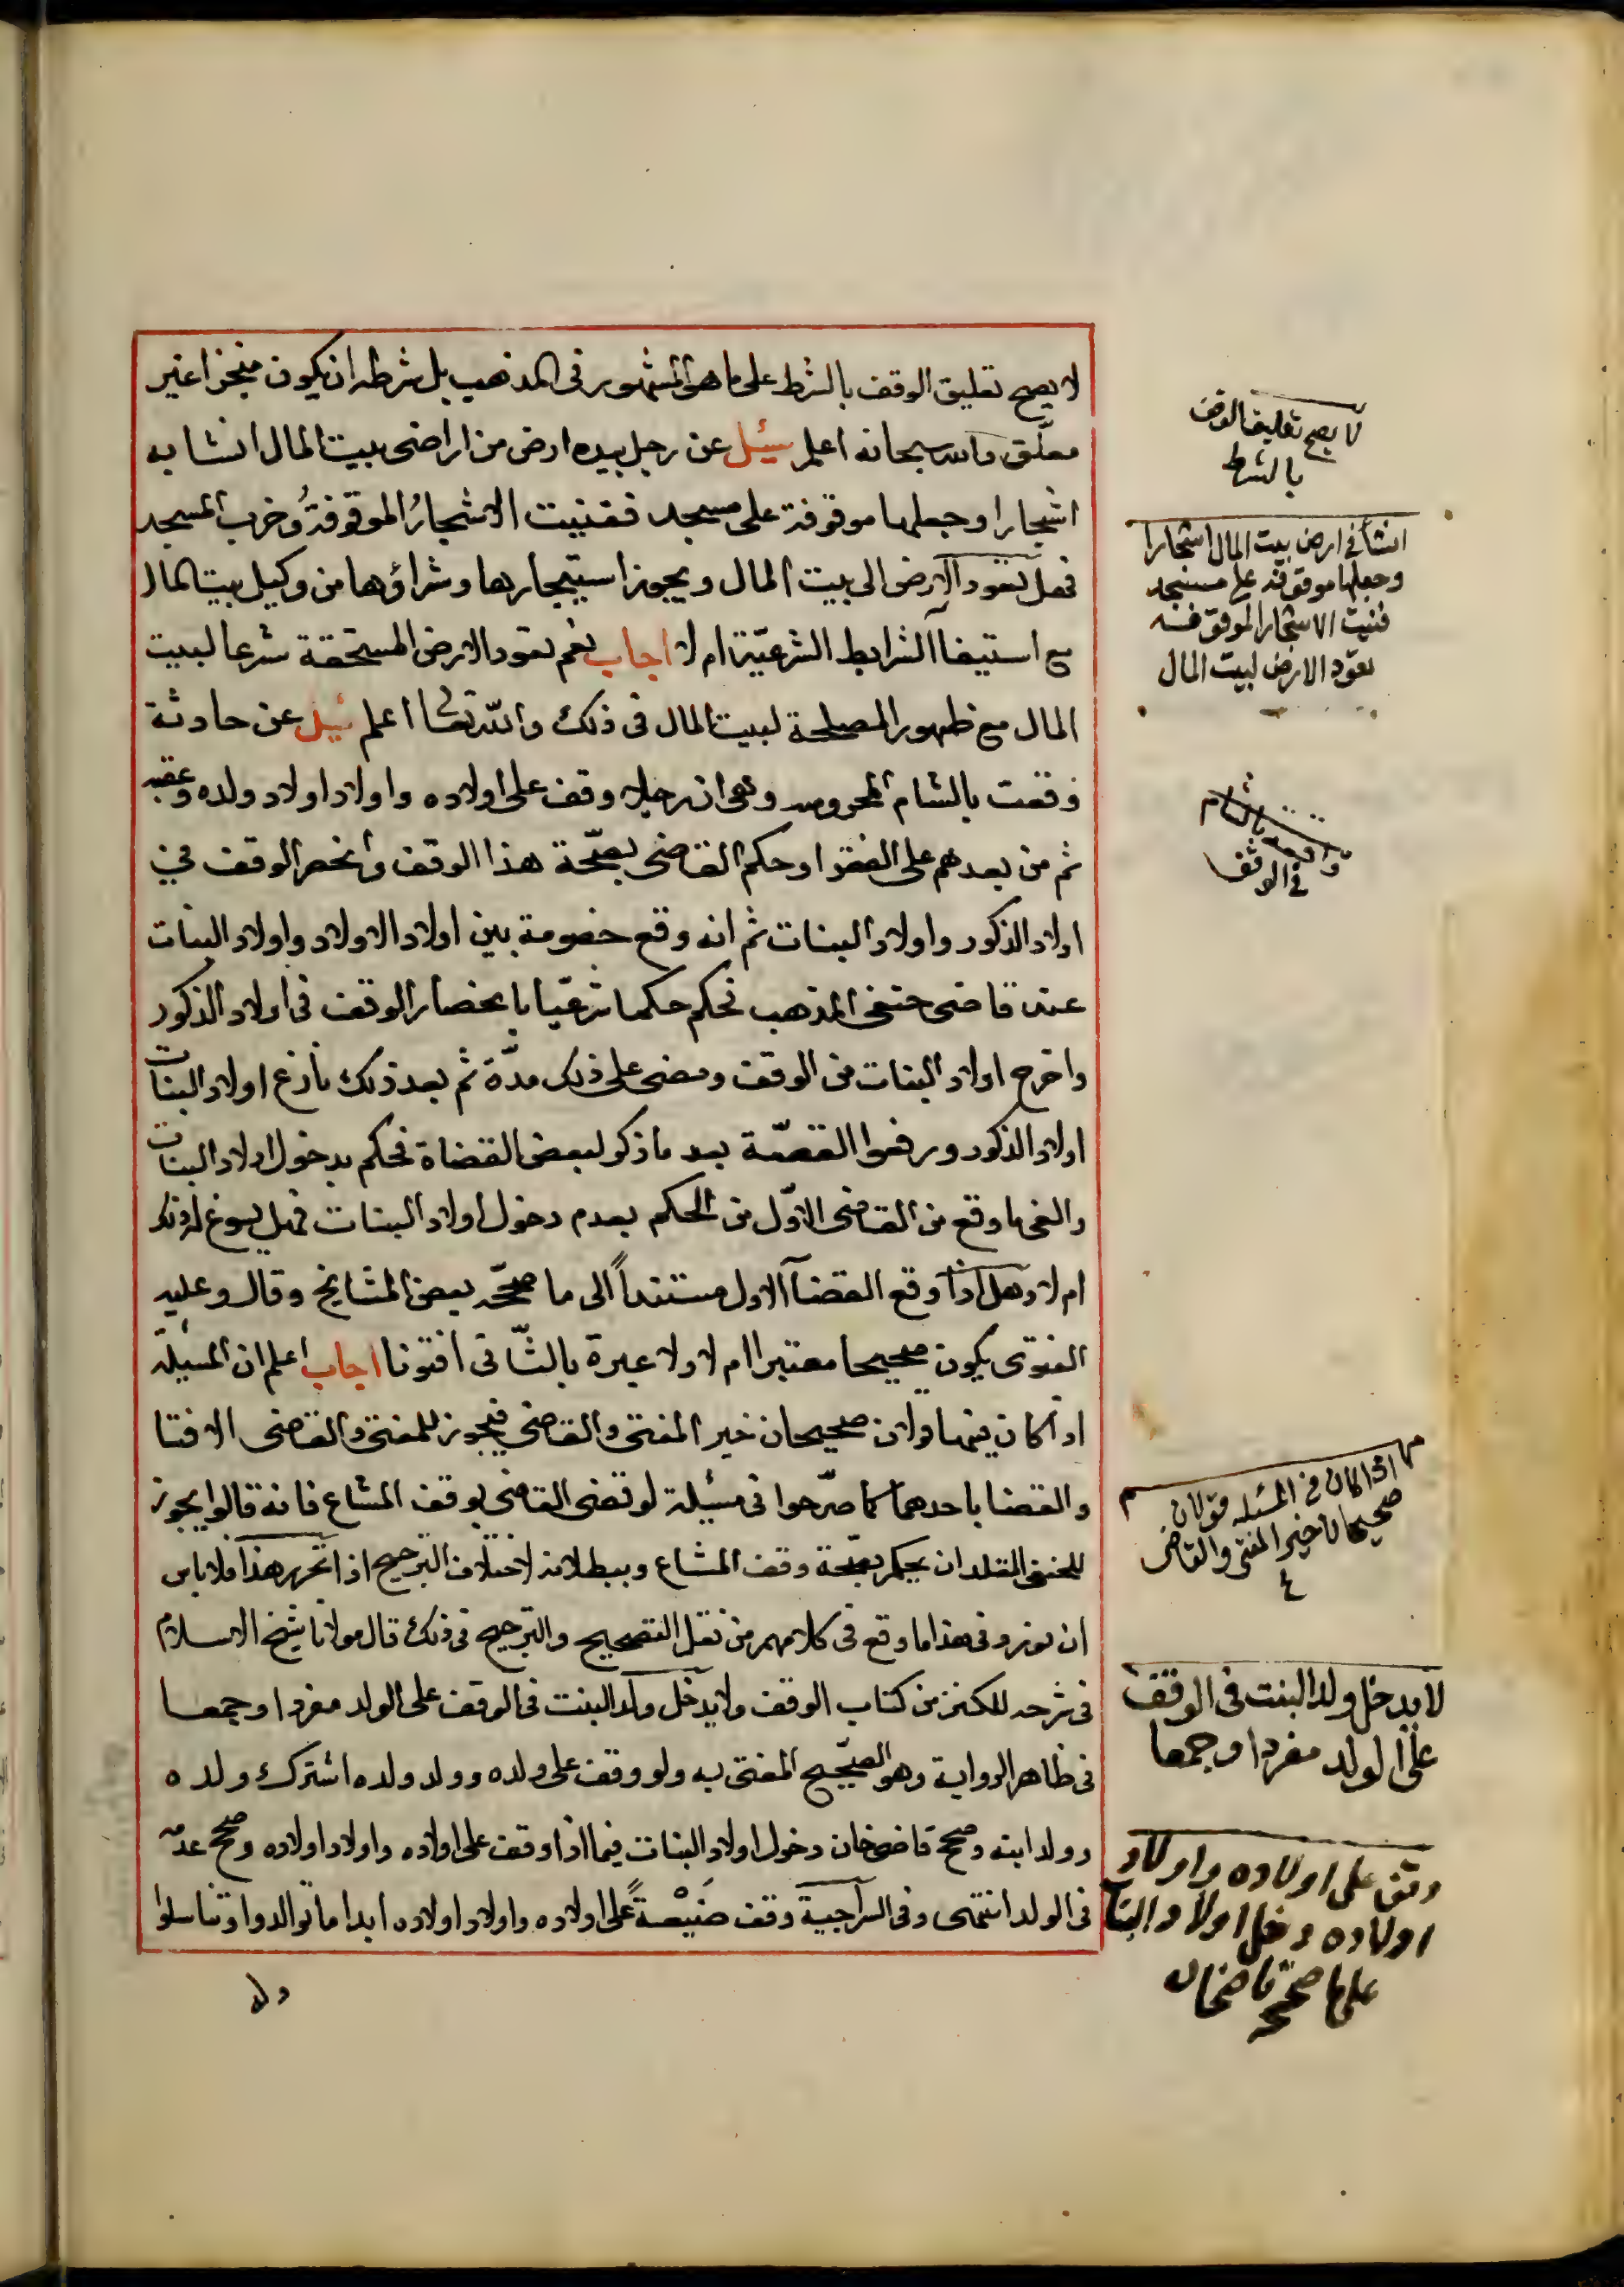 لا يصح تعليق الوقف بالشرط على ما هو المشهور فى المذهب بل شرطه ان يكون منجزا غير
معلّق والله سبحانه اعلم سئل عن رجل بيده ارض من اراضى بيت المال انشا به
اشجارا وجعلها موقوفة على مسجد ففنيت الاشجارُ الموقوفةُ وخرب المسجد
فهل تعود الارض الى بيت المال ويجوز استيجارها وشراؤها من وكيل بيت المال
مع استيفآ الشرايط الشرعيّة ام لا اجاب نعم تعود الارض المستحقة شرعا لبيت
المال مع ظهور المصلحة لبيت المال فى ذلك والله تعالى اعلم سئل عن حادثة
وقعت بالشام المحروسه وهى ان رجلا وقف على اولاده واولاد اولاد ولده وعقبه
ثم من بعدهم على الفقرا وحكم القاضى بصحّة هذا الوقف وانحصر الوقف في
اولاد الذكور واولاد البنات ثم انه وقع خصومة بين اولاد الاولاد واولاد البنات
عند قاضى حنفى المذهب فحكم حكما شرعيّا بانحصار الوقف فى اولاد الذكور
واخرج اولاد البنات من الوقف ومضى على ذلك مدّة ثم بعد ذلك نازع اولاد البنات
اولاد الذكور ورفعوا القصّة بعد ما ذكر لبعض القضاة فحكم بدخول اولاد البنات
والغى ما وقع من القاضى الاوّل من الحكم بعدم دخول اولاد البنات فهل يسوغ له ذلك
ام لا وهل اذا وقع القضآ الاول مستنداً الى ما صحّحه بعض المشايخ وقال وعليه
الفتوى يكون صحيحا معتبرا ام لا ولا عبرة بالثّانى افتونا اجاب اعلم ان المسيلة
اذا كان فيها قولان صحيحان خير المفتى والقاضى فيجوز للمفتى والقاضى الافتا
والقضا باحدهما كما صرّحوا فى مسئلة لو قضى القاضى بوقف المشاع فانه قالوا يجوز
للحنفى المقلد ان يحكم بصحّة وقف المشاع وببطلانه لاختلاف الترجيح اذا تحرر هذا فلا باس
ان نورد فى هذا ما وقع فى كلامهم من نقل التصحيح والترجيح فى ذلك قال مولانا شيخ الاسلام
فى شرحه للكنز من كتاب الوقف ولا يدخل ولد البنت فى الوقف على الولد مفردا وجمعا
فى ظاهر الرواية وهو الصّحيح المفتى به ولو وقف على ولده وولد ولده اشترك ولده
وولد ابنه وصحح قاضى خان دخول اولاد البنات فيما اذا وقف على اولاده واولاد اولاده وصحح عدمه
فى الولد انتهى وفى السراجية وقف ضَيْعةً على اولاده واولاد اولاده ابدا ما توالدوا وتناسلوا
وله
لا يصح تعليق الوقف
بالشرط
انشأ في ارض بيت المال اشجارا
وجعلها موقوفة على مسجد
ففنيت الاشجار الموقوفه
تعود الارض لبيت المال
واقعه بالشام
في الوقف
اذا كان في المسئله قولان
صحيحان خير المفتى والقاضى
لا يدخل ولد البنت فى الوقف
على الولد مفردا وجمعا
وقف على اولاده واولاد
اولاده دخل اولاد البنات
على ما صححه قاضخان